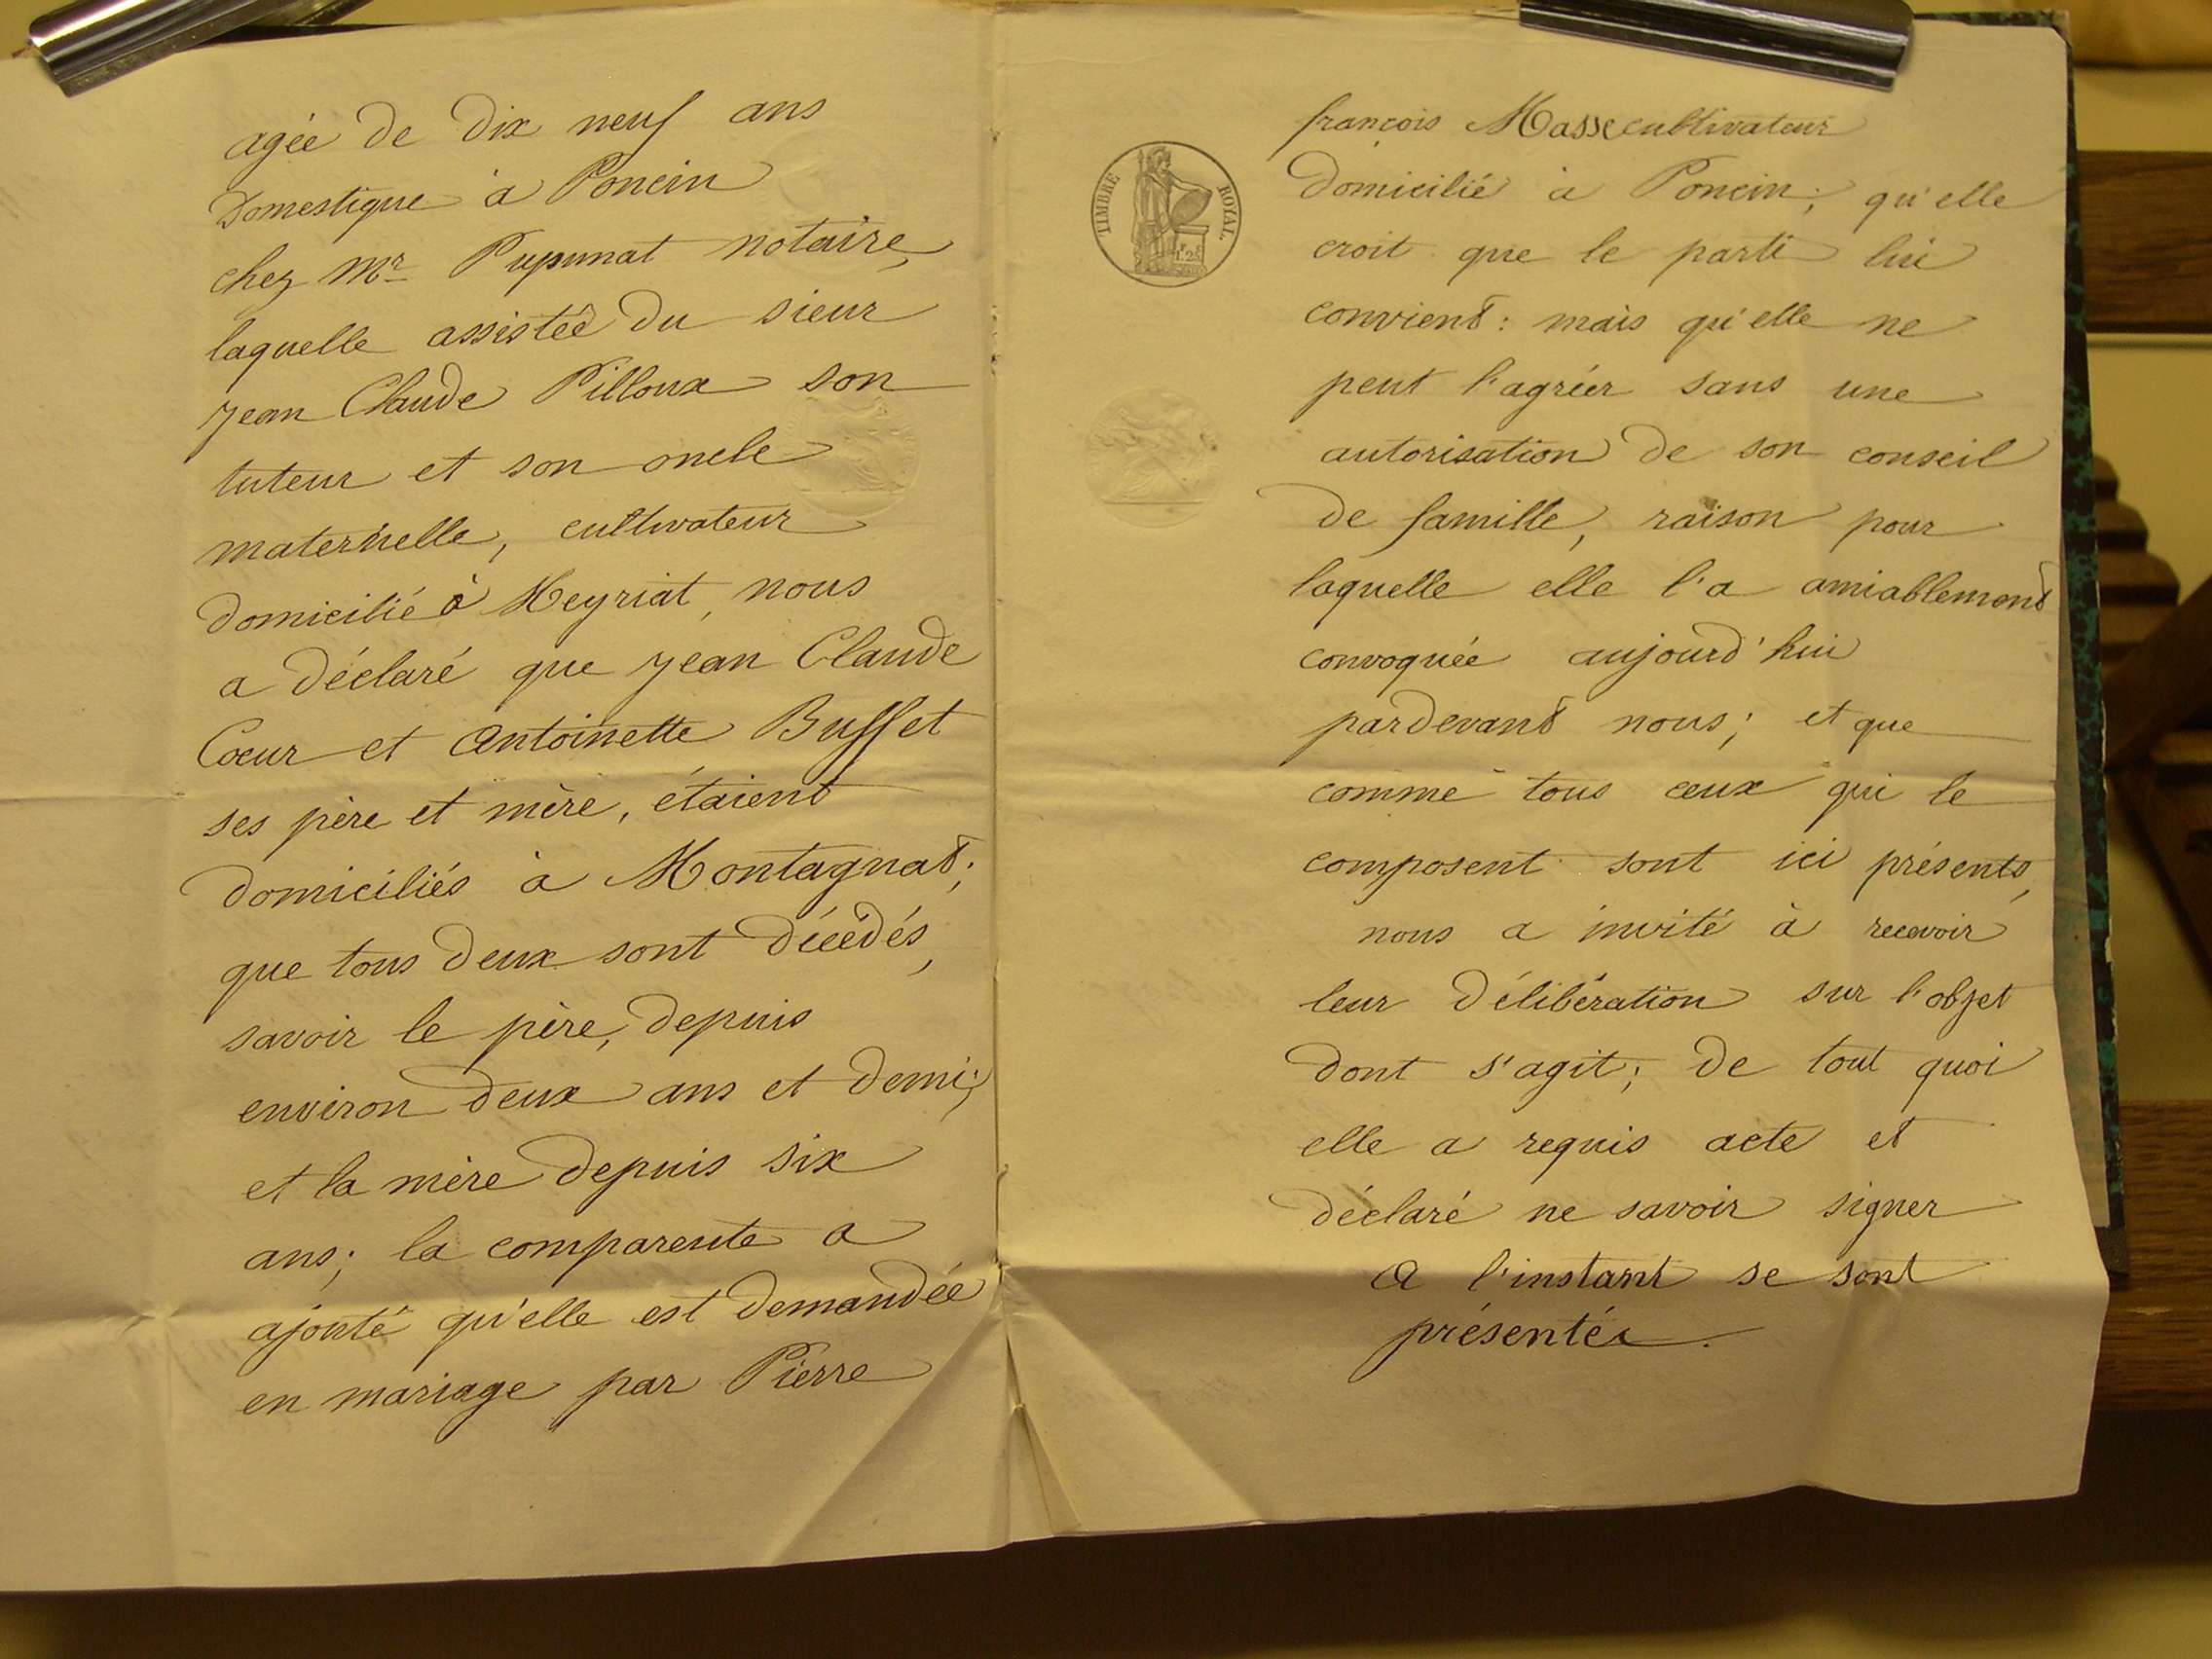 agée de dix neuf ans
Domestique à Poncin
chez Mr Pupunat notaire,
laquelle assistée du sieur
Jean Claude Pilloux son
tuteur et son oncle
maternelle, cultivateur
domicilié à Meyriat, nous
a déclaré que Jean Claude
Coeur et Antoinette Buffet
ses père et mère, étaient
domiciliés à Montagnat;
que tous deux sont décédés,
savoir le père, depuis
environ deux ans et demi;
et la mère depuis six
ans; la comparente a
ajouté qu'elle est demandée
en mariage par Pierre
TIMBRE ROYAL
françois Masse cultivateur
domicilié à Poncin; qu'elle
croit que le parti lui
convient: mais qu'elle ne
peut l'agréer sans une
autorisation de son conseil
de famille, raison pour
laquelle elle l'a amiablement
convoquée aujourd'hui
pardevant nous; et que
comme tous ceux qui le
composent sont ici présents,
nous a invité à recevoir
leur délibération sur l'objet
dont s'agit; de tout quoi
elle a requis acte et
déclaré ne savoir signer
A l'instant se sont
présentés.